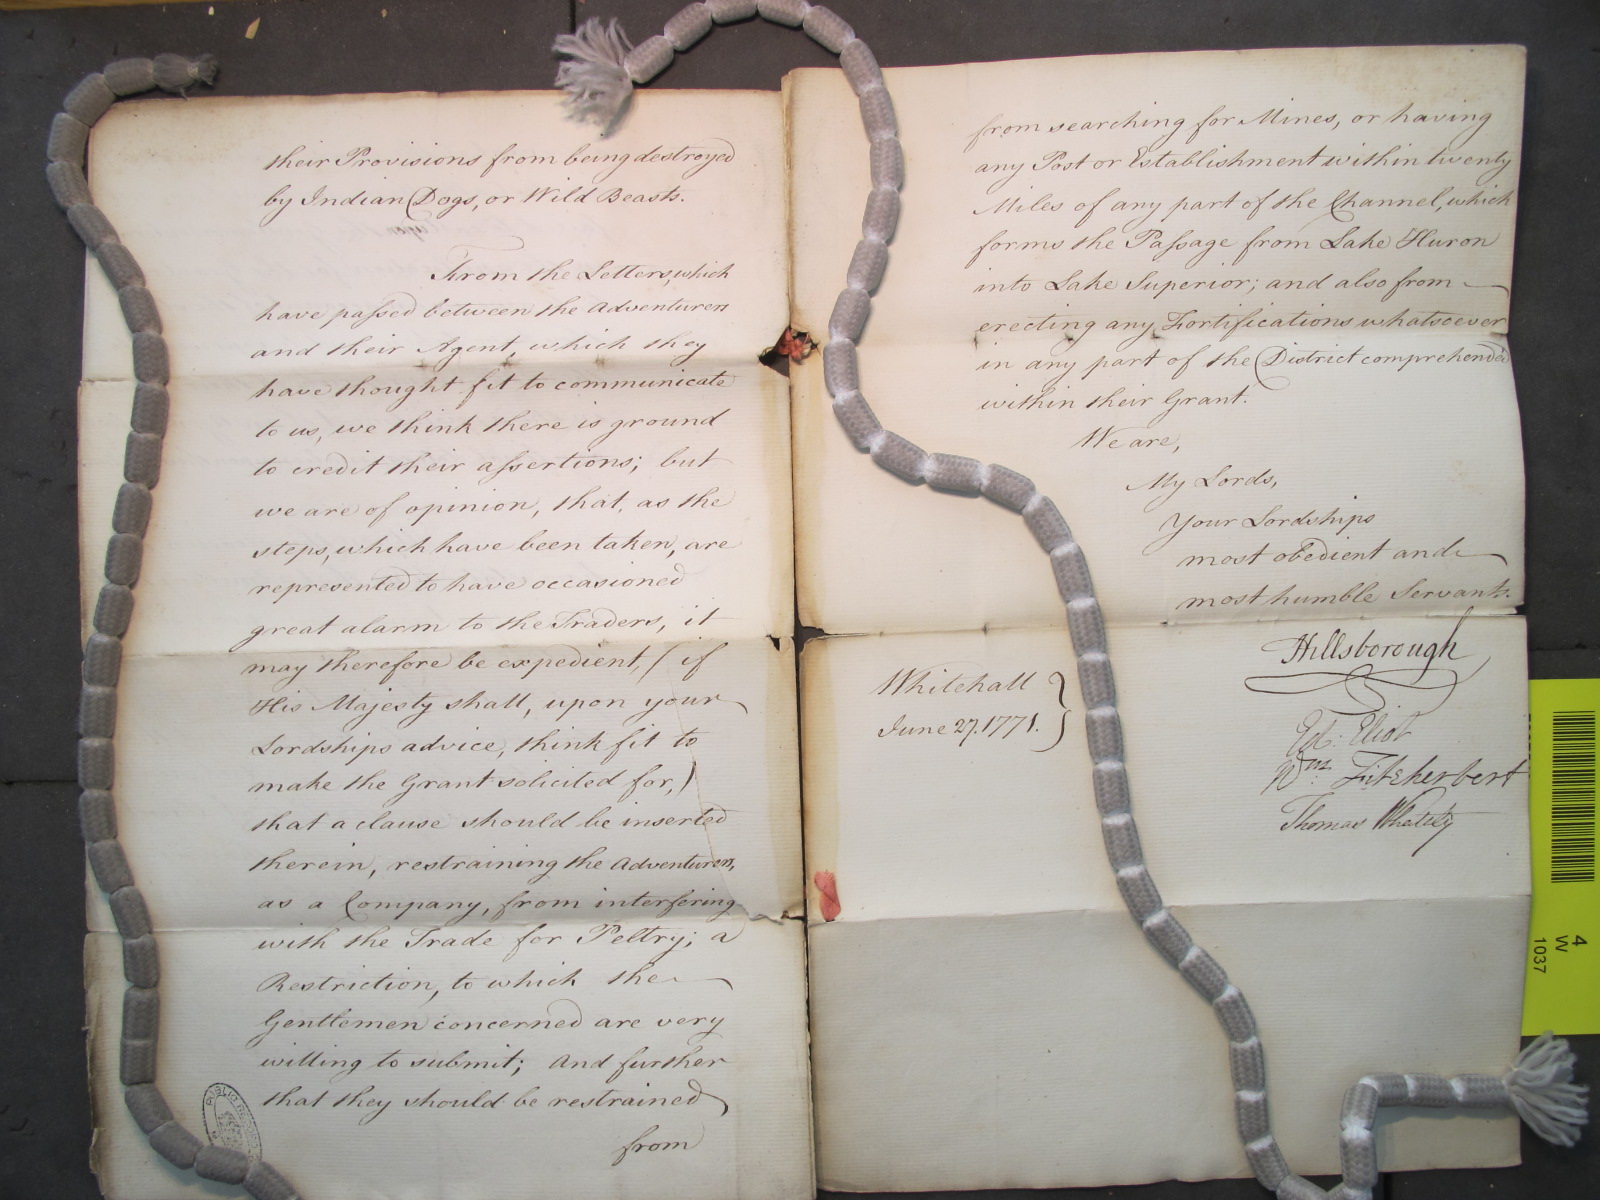 their Provisions from being destroyed
by Indian Dogs, or Wild Beasts.
From the Letters, which
have passed between the Adventurers
and their Agent, which they
have thought fit to communicate
to us, we think there is ground
to credit their assertions; but
we are of opinion, that, as the
steps, which have been taken, are
represented to have occasioned
great alarm to the Traders, it
may therefore be expedient, (if
His Majesty shall, upon your
Lordships advice, think fit to
make the Grant solicited for,)
that a clause should be inserted
therein, restraining the Adventurers,
as a Company, from interfering
with the Trade for Peltry; a
Restriction, to which the
Gentlemen concerned are very
willing to submit; And further
that they should be restrained
from
PUBLIC RECORD
from searching for Mines, or having
any Post or Establishment within twenty
Miles of any part of the Channel, which
forms the Passage from Lake Huron
into Lake Superior; and also from
erecting any Fortifications whatsoever
in any part of the District comprehended
within their Grant.
We are,
My Lords,
Your Lordships
most obedient and
most humble Servants.
Hillsborough
Ed: Eliot
Wm Fitzherbert
Thomas Whately
Whitehall
June 27. 1771.
4
W
1037